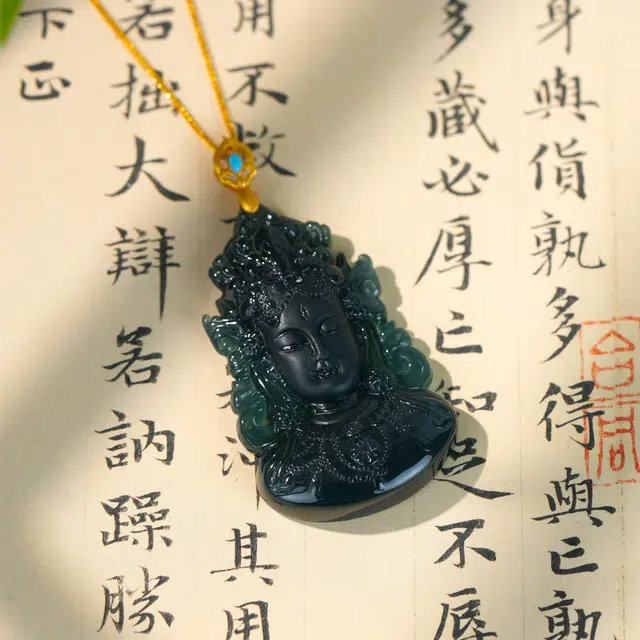 身與貨孰多得與亡孰
多藏必厚亡知足不辱
用不敝其用
若拙大辯若訥躁勝
下正